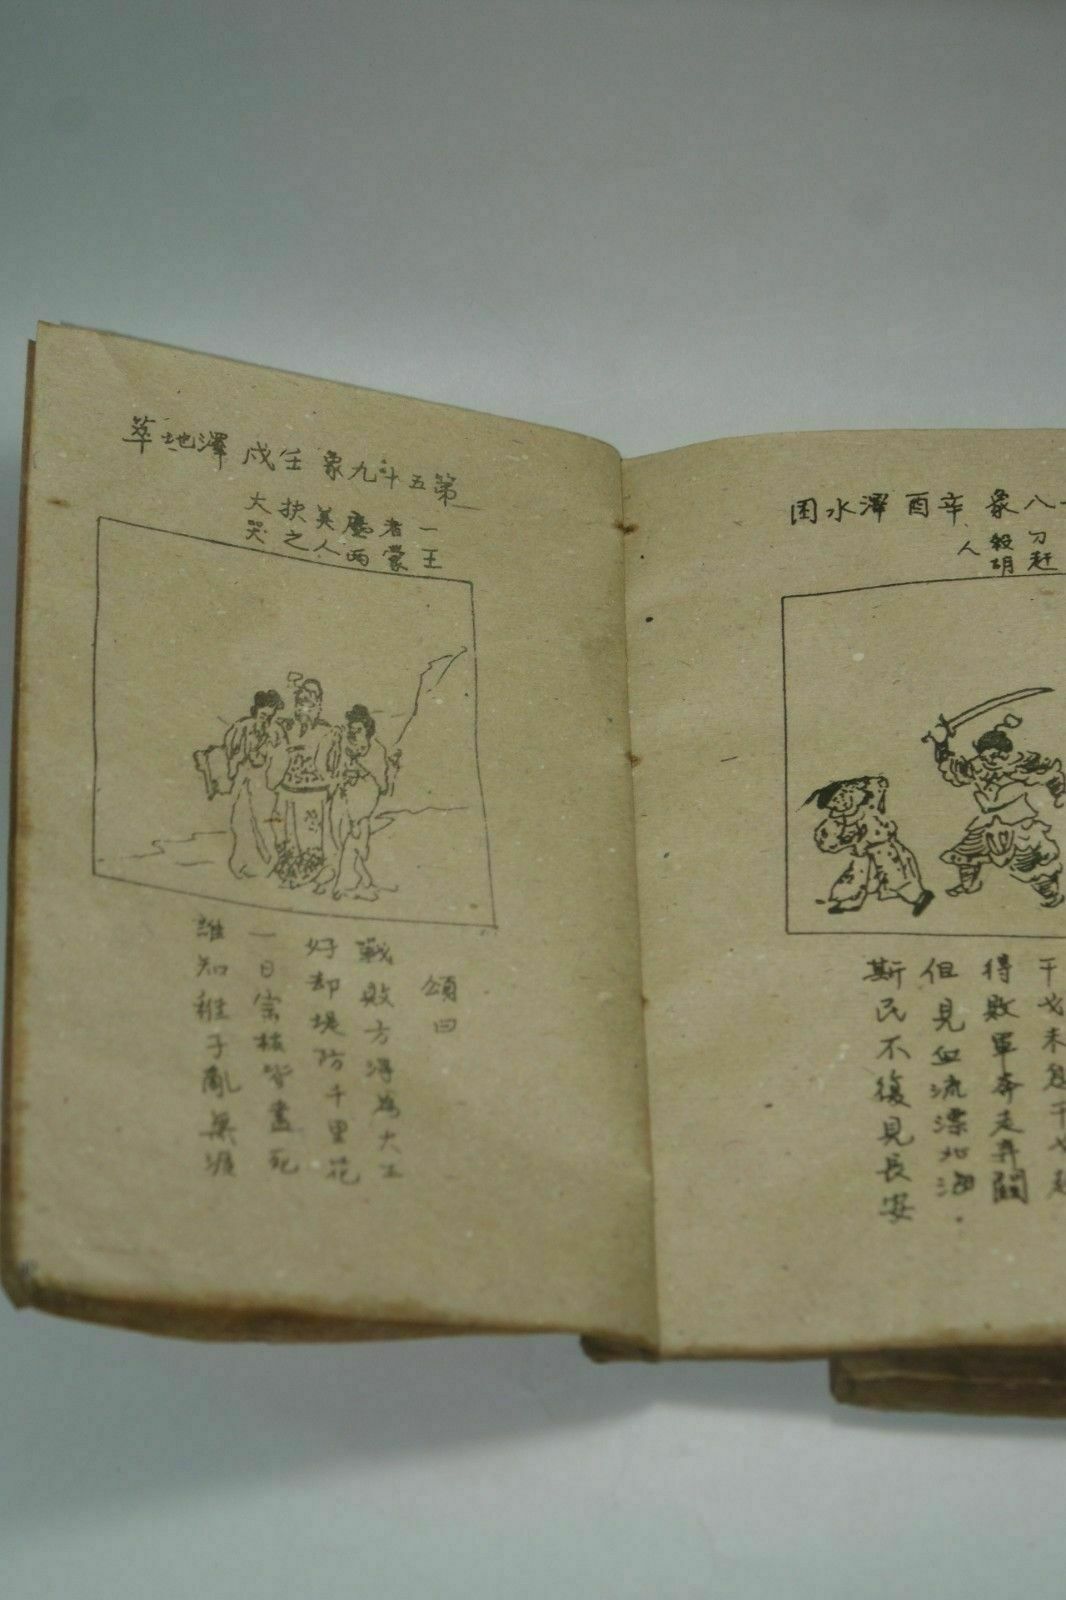 八象 辛酉 澤水困
刀赶
殺胡
人
干戈未息干戈起
得敗軍奔走弃關
但見血流漂北海
斯民不復見長安
第五十九象 壬戌 澤地萃
一王
者蒙
塵两
美人
扶之
大哭
頌曰
戰敗方淂為大王
好却堤防千里花
一日宗枝皆盡死
誰知稚子亂無涯